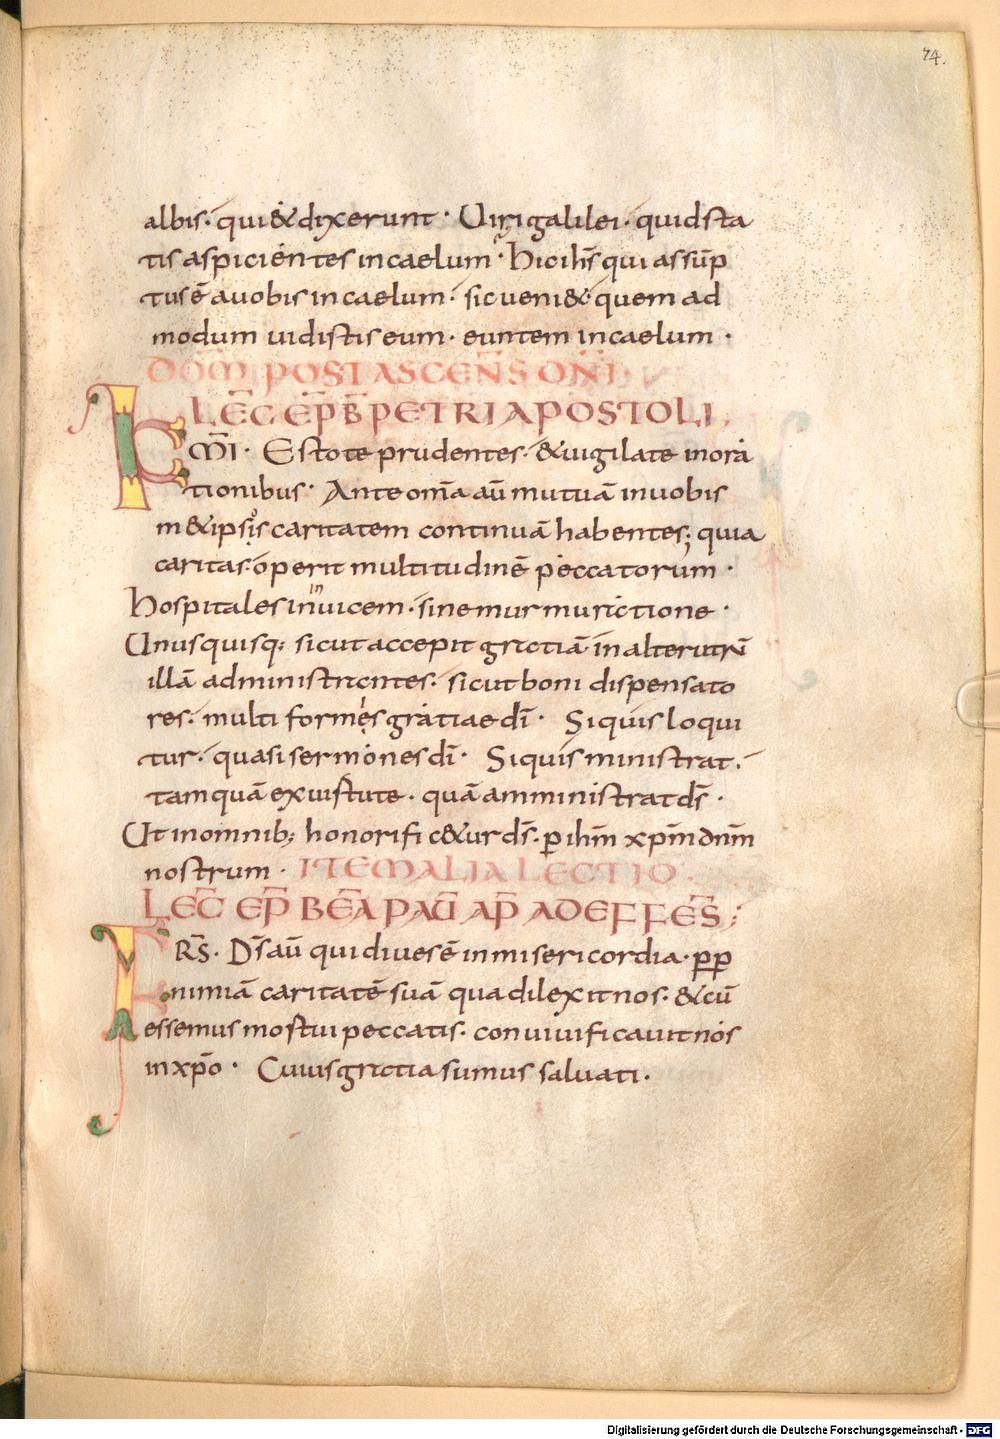 74.
albis· qui&dixerunt· Uirigalilei· quidsta
tis aspicientes incaelum· hicih̄s qui assūp
tusē auobis incaelum· sic ueni&· quem ad
modum uidistis eum· euntem incaelum·
DOM̄ POST ASCEN̄S DN̄I·
LEC̄ EP̄ B̄ PETRI APOSTOLI,
KM̄I· Estote prudentes· &uigilate inora
tionibus· Ante om̄a aū mutuā inuobis
m&ipsis caritatem continuā habentes; quia
caritas operit multitudinē peccatorum·
hospitales inuicem· sine murmuratione·
Unusquisq; sicut accepit gratiā inalterutrū
illā administrantes· sicut boni dispensato
res· multi formes gratiae dī· Siquis loqui
tur· quasi sermones dī· Siquis ministrat·
tamquā exuirtute· quā amministrat ds̄·
Ut inomnib; honorific&ur ds̄· p ih̄m xp̄m dn̄m
nostrum· ITEM ALIA LECTIO·
LEC̄ EP̄ BEĀ PAŪ AP̄ ADEFFES̄;
FRS̄· Ds̄ aū qui diues ē inmisericordia· pp
nimiā caritatē suā qua dilexit nos· &cū
essemus mortui peccatis· conuiuificauit nos
inxp̄o· Cuius gratia sumus saluati·
Digitalisierung gefördert durch die Deutsche Forschungsgemeinschaft - DFG